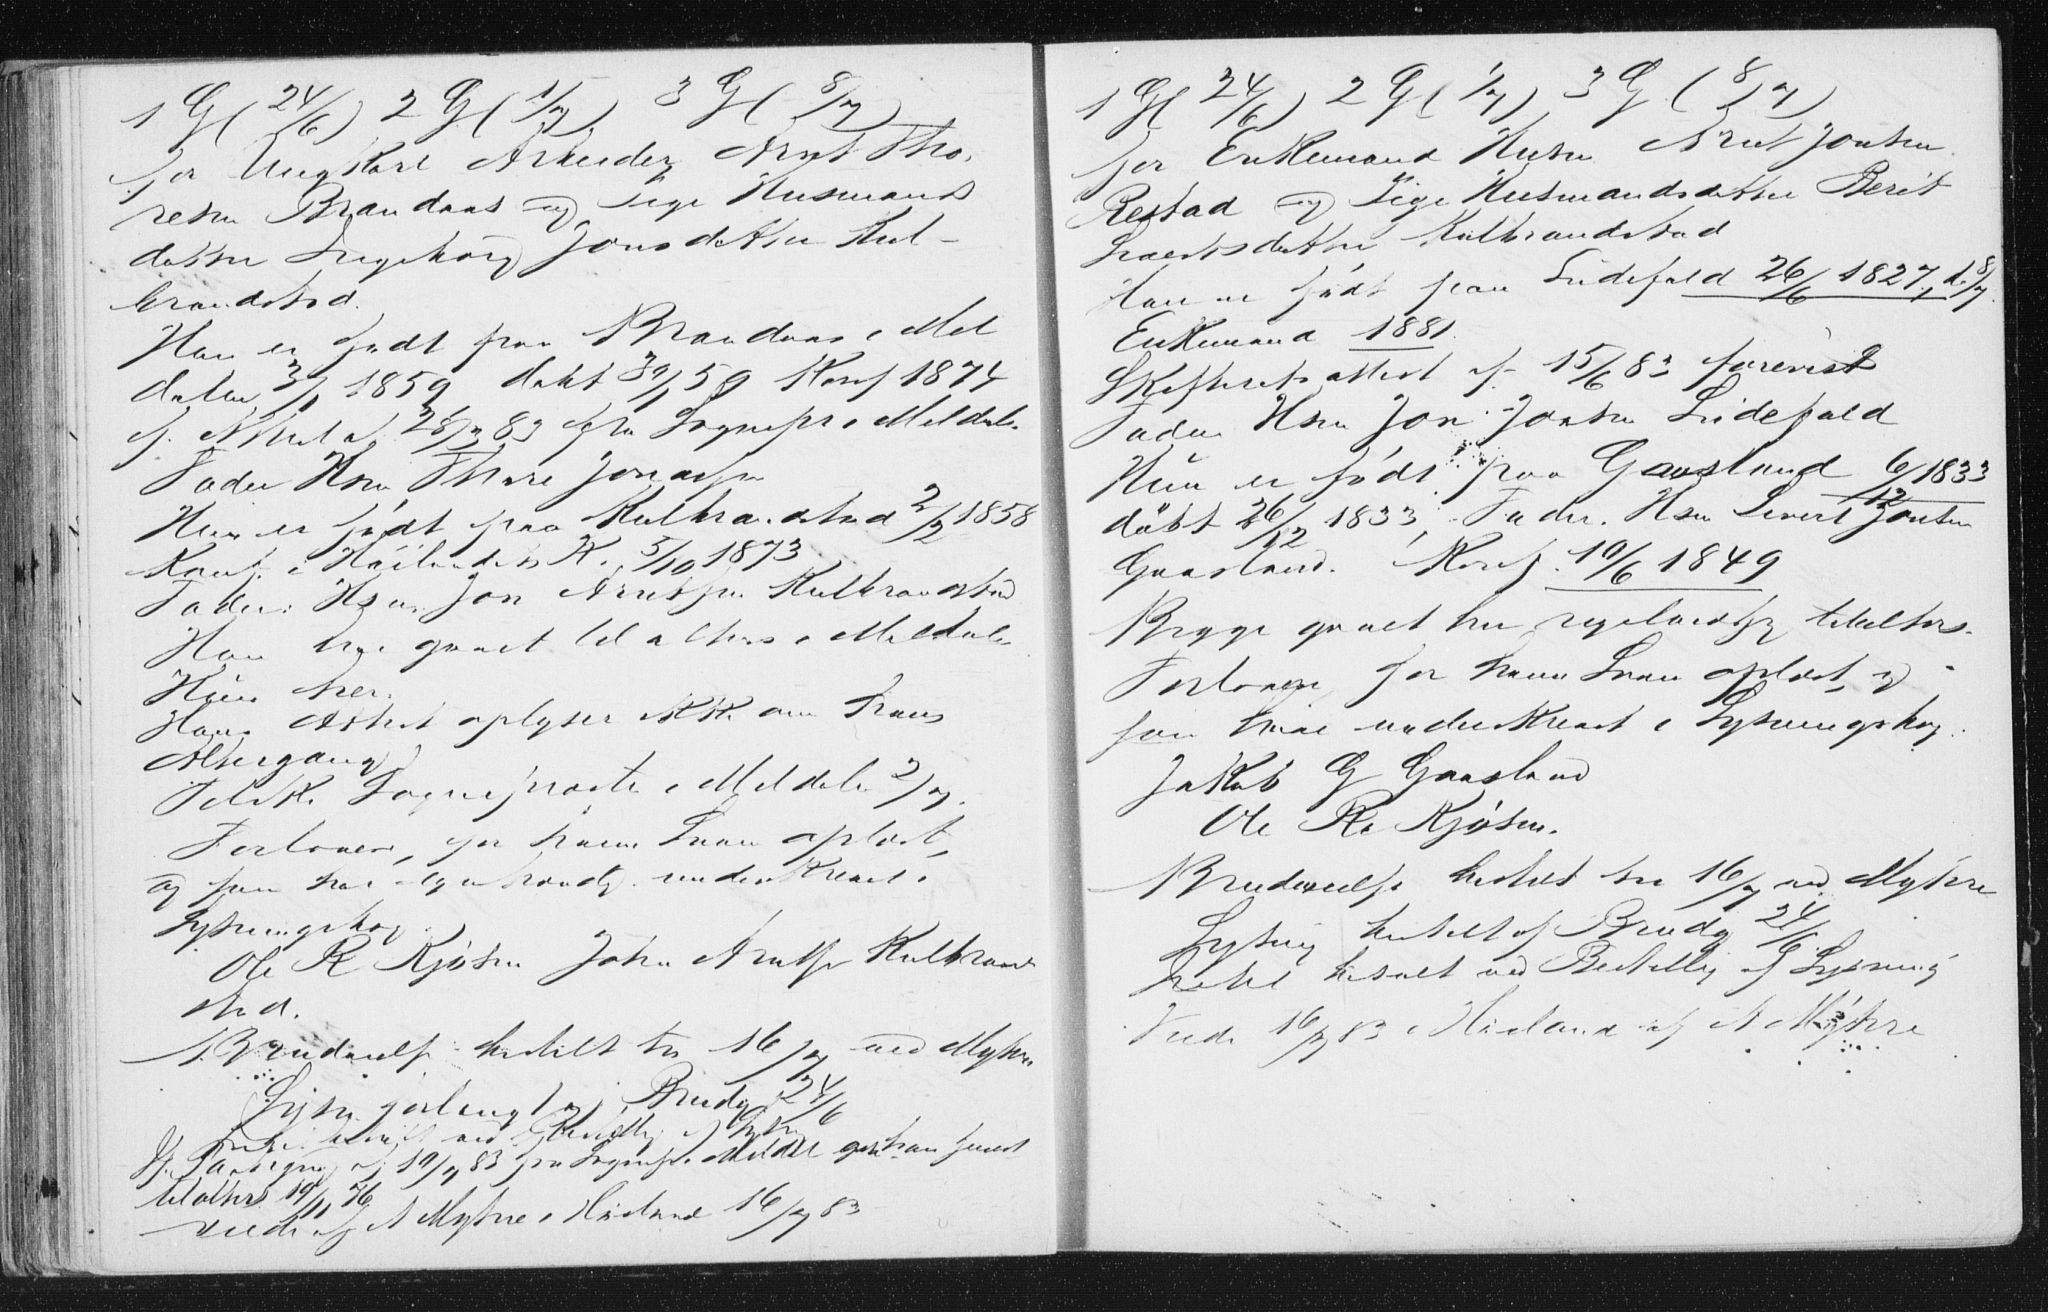 1 G (24/6) 2 G (1/7) 3 G (8/7)
for Ungkarl Arbeider Arnt Tho-
resen Brandaas og Pige Husmands
datter Ingeborg Jonsdatter Kul-
brandstad.
Han er født paa Brandaas i Mel
dalen 3/1 1859 døbt 30/1 59 Konf 1874
ef. Attest af 28/3 83 fra Sognepr i Meldal.
Fader Hsm Thore Jonassen
Hun er født paa Kulbrandstad 2/2 1858
Konf. i Hølandets K. 5/10 1873
Fader: Hsm. Jon Arntsen Kulbrandstad
Han har gaaet til alters i Meldalen
Hun her.
Hans Attest oplyser ikke om hans
Altergang
Sognepræsten i Meldalen 2/7.
Forlover, for ham oplæst,
og som har egenhændig underskrevet i
Lysningsbog.
Ole R Kjøsen John Arntsen Kulbrand
stad.
Brudevielse bestilt til 16/7 ved Mytsre
Lysn forlangt af Brudg 24/6
ved Bestilling af Lysn
19/7 83 fra Sognepr i Meldal han senest
til alters 19/11 76
viede af A Mytsre i Høland 16/7 83
1 G (24/6) 2 G (1/7) 3 G (8/7)
for Enkemand Husm Arnt Jonsen
Restad og Pige Husmandsdatter Berit
Sivertsdatter Kulbrandstad
Han er født paa Lidefald 26/6 1827, d. 8/7.
Enkemand 1881.
Skifteretsattest af 15/6 83 forevist
Fader Hsm Jon Jonsen Lidefald
Hun er født paa Gaasland 6/12 1833
døbt 26/12 1833, Fader. Hsm Sivert Jonsen
Gaasland. Konf. 10/6 1849
Begge gaaet her regelmæssig til alters.
Forlovere, for ham oplæst, og
som have underskrevet i Lysningsbog.
Jakob G Gaasland
Ole R. Kjøsen.
Brudevielse bestilt til 16/7 ved Mytsre
Lysning bestilt af Brudg 24/6.
betalt ved Bestilling af Lysning
Viede 16/7 83 i Høland af A Mytsre